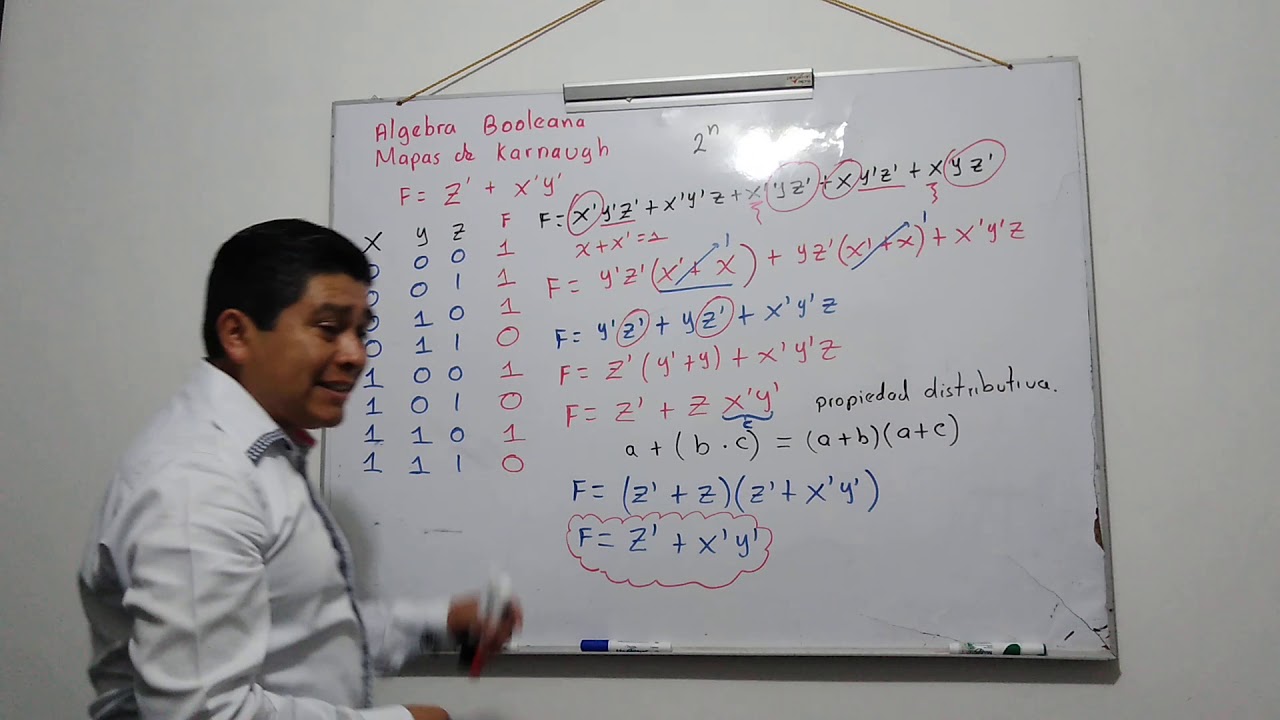 Algebra Booleana
Mapas de Karnaugh
2ⁿ
F= Z' + X'Y'
F= X'Y'Z' + X'Y'Z + X'YZ' + XY'Z' + XYZ'
X+X'=1
X Y Z F
0 0 0 1
0 0 1 1
0 1 0 1
0 1 1 0
1 0 0 1
1 0 1 0
1 1 0 1
1 1 1 0
F= Y'Z'(X'+X) 1 + YZ'(X'+X) 1 + X'Y'Z
F= Y'Z' + YZ' + X'Y'Z
F= Z'(Y'+Y) + X'Y'Z
F= Z' + Z X'Y' propiedad distributiva.
c
a+(b·c) = (a+b)(a+c)
F= (Z'+Z)(Z'+X'Y')
F= Z' + X'Y'